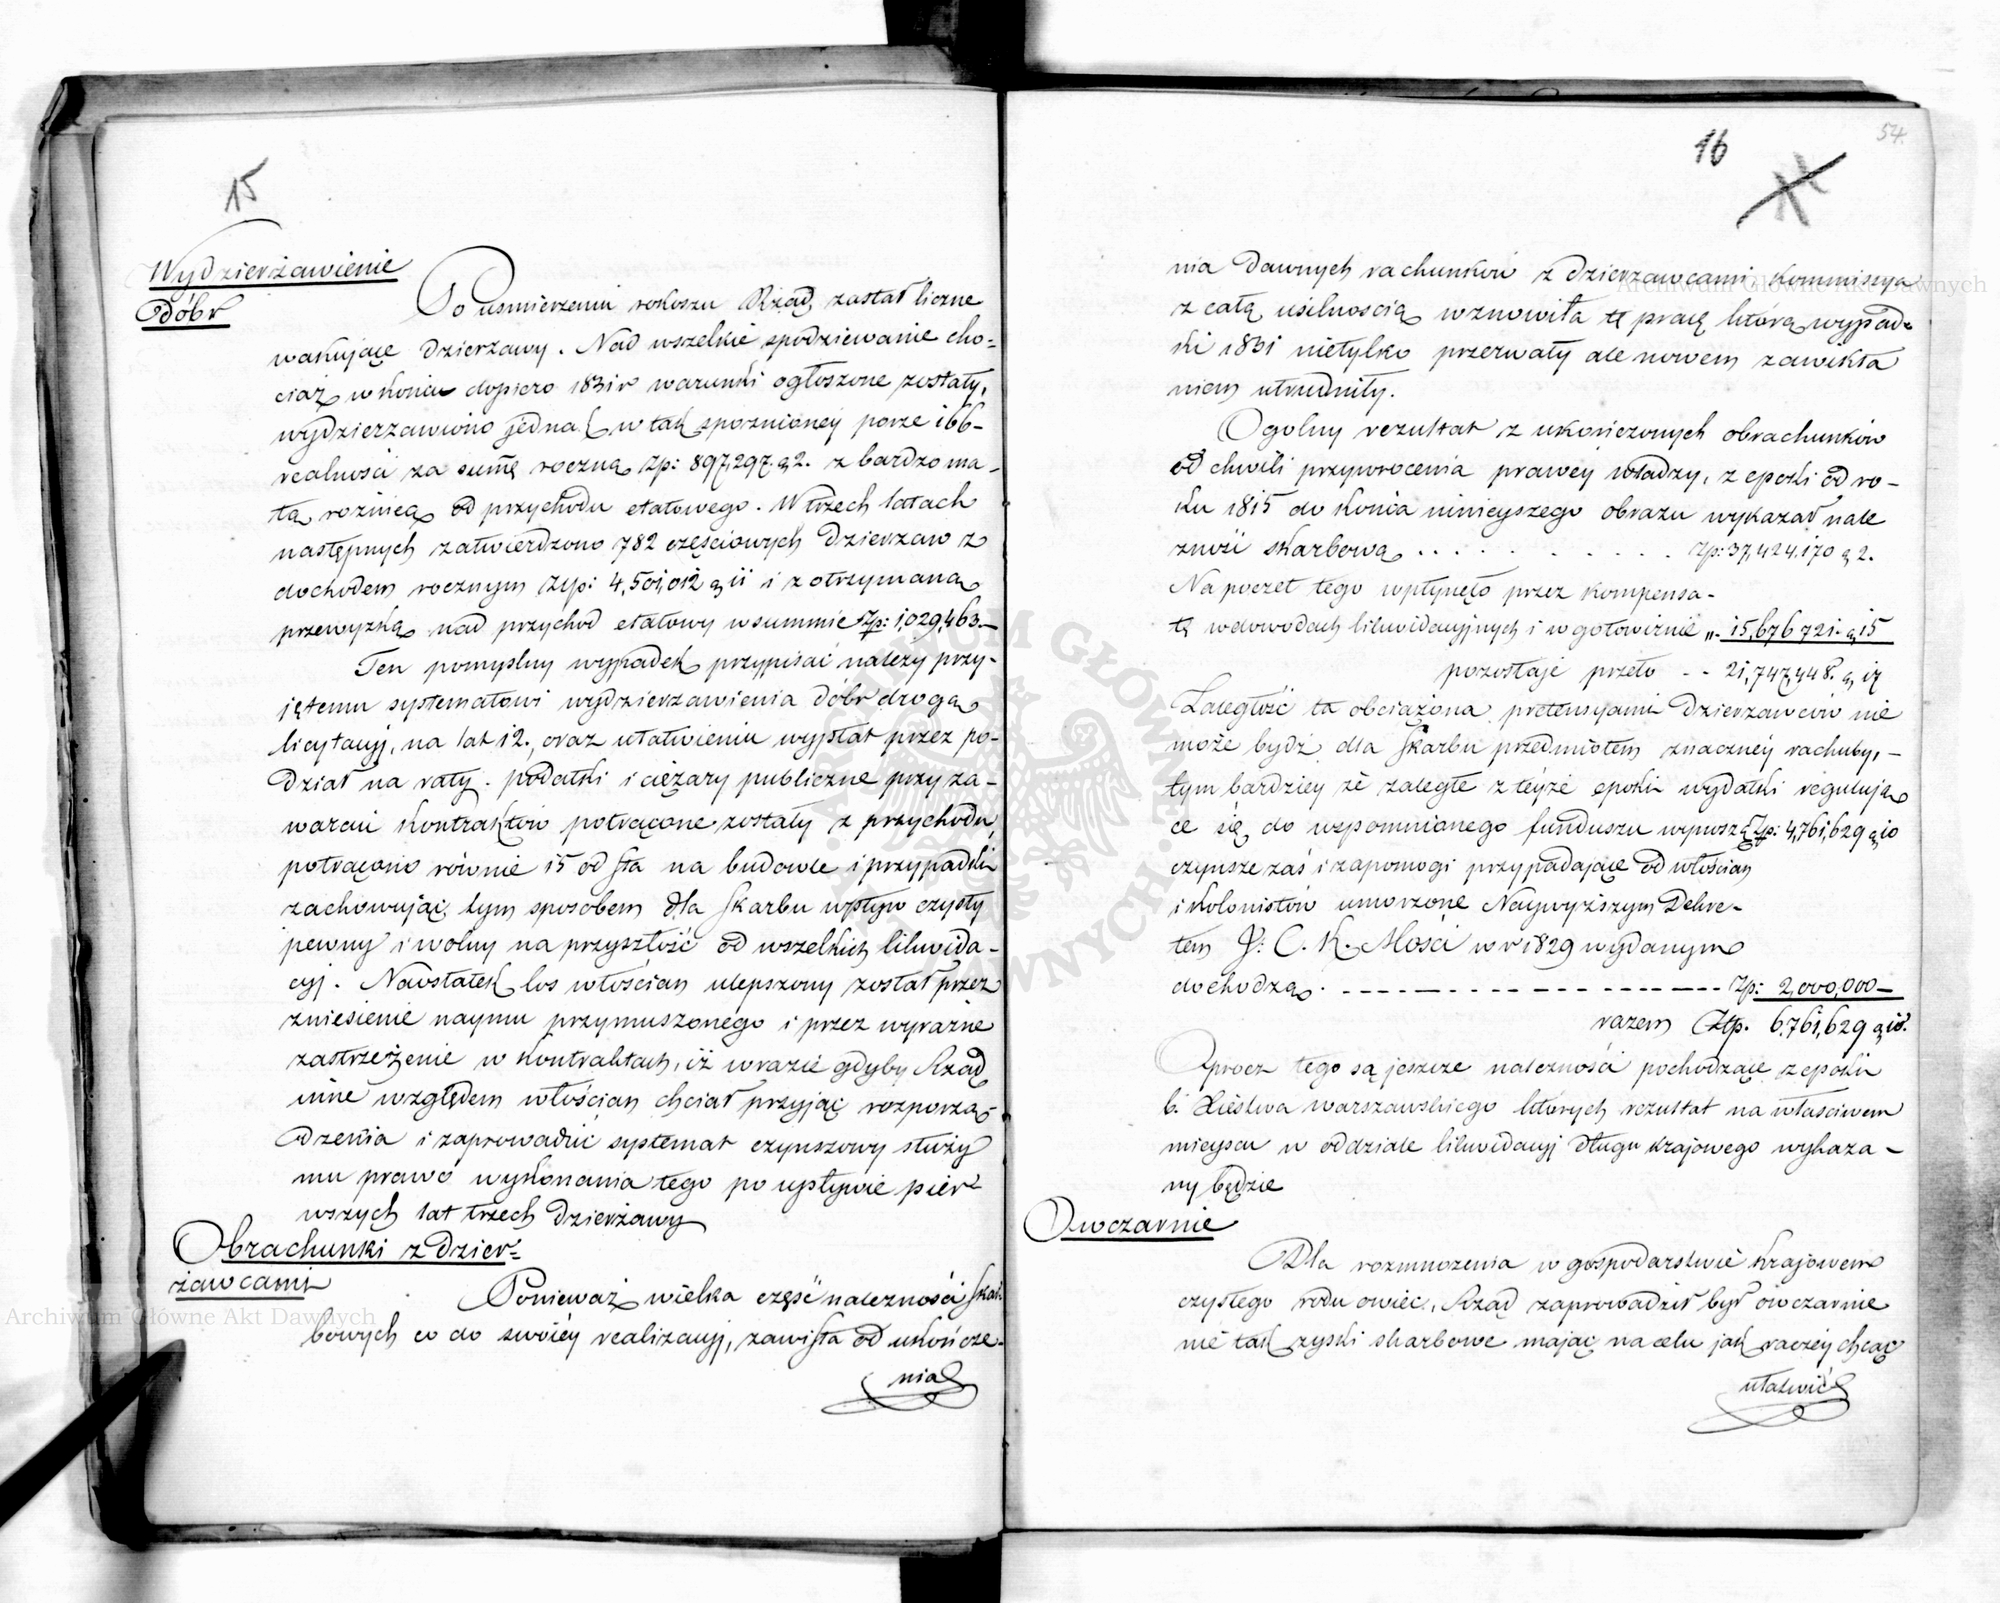 15
Wydzierżawienie
dóbr
Po uśmierzeniu rokoszu Rząd zastał liczne
wakujące dzierżawy. Nad wszelkie spodziewanie cho=
ciaż w końcu dopiero 1831 r warunki ogłoszone zostały,
wydzierzawiono jednak w tak spoznioney porze 166-
realności za sumę roczną Zp: 897,297. g 2. z bardzo ma-
łą roźnicą od przychodu etatowego. W trzech latach
następnych zatwierdzono 782 częściowych dzierżaw z
dochodem rocznym Złp: 4,501,012 g 11 i z otrzymaną
przewyzką nad przychod etatowy w summie Zp: 1,029,463.—
Ten pomyslny wypadek przypisać nalezy przy-
iętemu systematowi wydzierzawienia dóbr drogą
licytacyj, na lat 12., oraz ułatwieniu wypłat przez po-
dział na raty. podatki i ciężary publiczne przy za-
warciu kontraktów potrącone zostały z przychodu,
potrącono równie 15 od sta na budowle i przypadki
zachowując tym sposobem dla Skarbu wpływ czysty
pewny i wolny na przyszłość od wszelkich likwida-
cyj. Naostatek los włościan ulepszony został przez
zniesienie naymu przymuszonego i przez wyraźne
zastrzeżenie w kontraktach, iż w razie gdyby Rząd
inne względem włościan chciał przyjąc rozporzą-
dzenia i zaprowadzić systemat czynszowy służy
mu prawo wykonania tego po upływie pier-
wszych lat trzech dzierżawy
Obrachunki z dzier=
żawcami
Ponieważ wielka część należności Skar-
bowych co do swoiéy realizacyj, zawisła od ukończe-
nia
16
54.
nia dawnych rachunków z dzierzawcami Kommissya
z całą usilnoscią wznowiła tę pracę którą wypad-
ki 1831 nietylko przerwały ale nowem zawikła
niem utrudniły.
Ogolny rezultat z ukończonych obrachunków
od chwili przywrocenia prawey władzy, z epoki od ro-
ku 1815 do końca niniejszego obrazu wykazał nale
zność skarbową . . . . . . . . . Zp: 37,424.170 g 2.
Na poczet tego wpłynęło przez kompensa-
tę w dowodach likwidacyjnych i w gotowiznie „. 15,676 721. g 15
pozostaje przeto - - 21,747,448. g 17
Zaległość ta obciążona pretensyami Dzierzawców nie
może bydź dla Skarbu przedmiotem znaczney rachuby,-
tym bardziey że zaległe z teyże epoki wydatki regulują
ce się do wspomnianego funduszu wynoszą Zp: 4,761,629 g 10
czynsze zaś i zapomogi przypadające od włościan
i kolonistów umorzone Naywyższym Dekre-
tem J: C. K. Mości w r 1829 wydanym
dochodzą . - - - - - - - - - - - - Zp: 2,000,000—
razem Złp. 6.761,629 g 10.
Oprocz tego są jeszcze należności pochodzące z epoki
b. Xięstwa warszawskiego których rezultat na właściwem
mieyscu w oddziale likwidacyj długu krajowego wykaza-
ny będzie
Owczarnie
Dla rozmnozenia w gospodarstwie krajowem
czystego rodu owiec, Rząd zaprowadził był owczarnie
nie tak zyski skarbowe mając na celu jak raczéy chcąc
ułatwić
Archiwum Główne Akt Dawnych
Archiwum Główne Akt Dawnych
ARCHIWUM GŁÓWNE AKT DAWNYCH